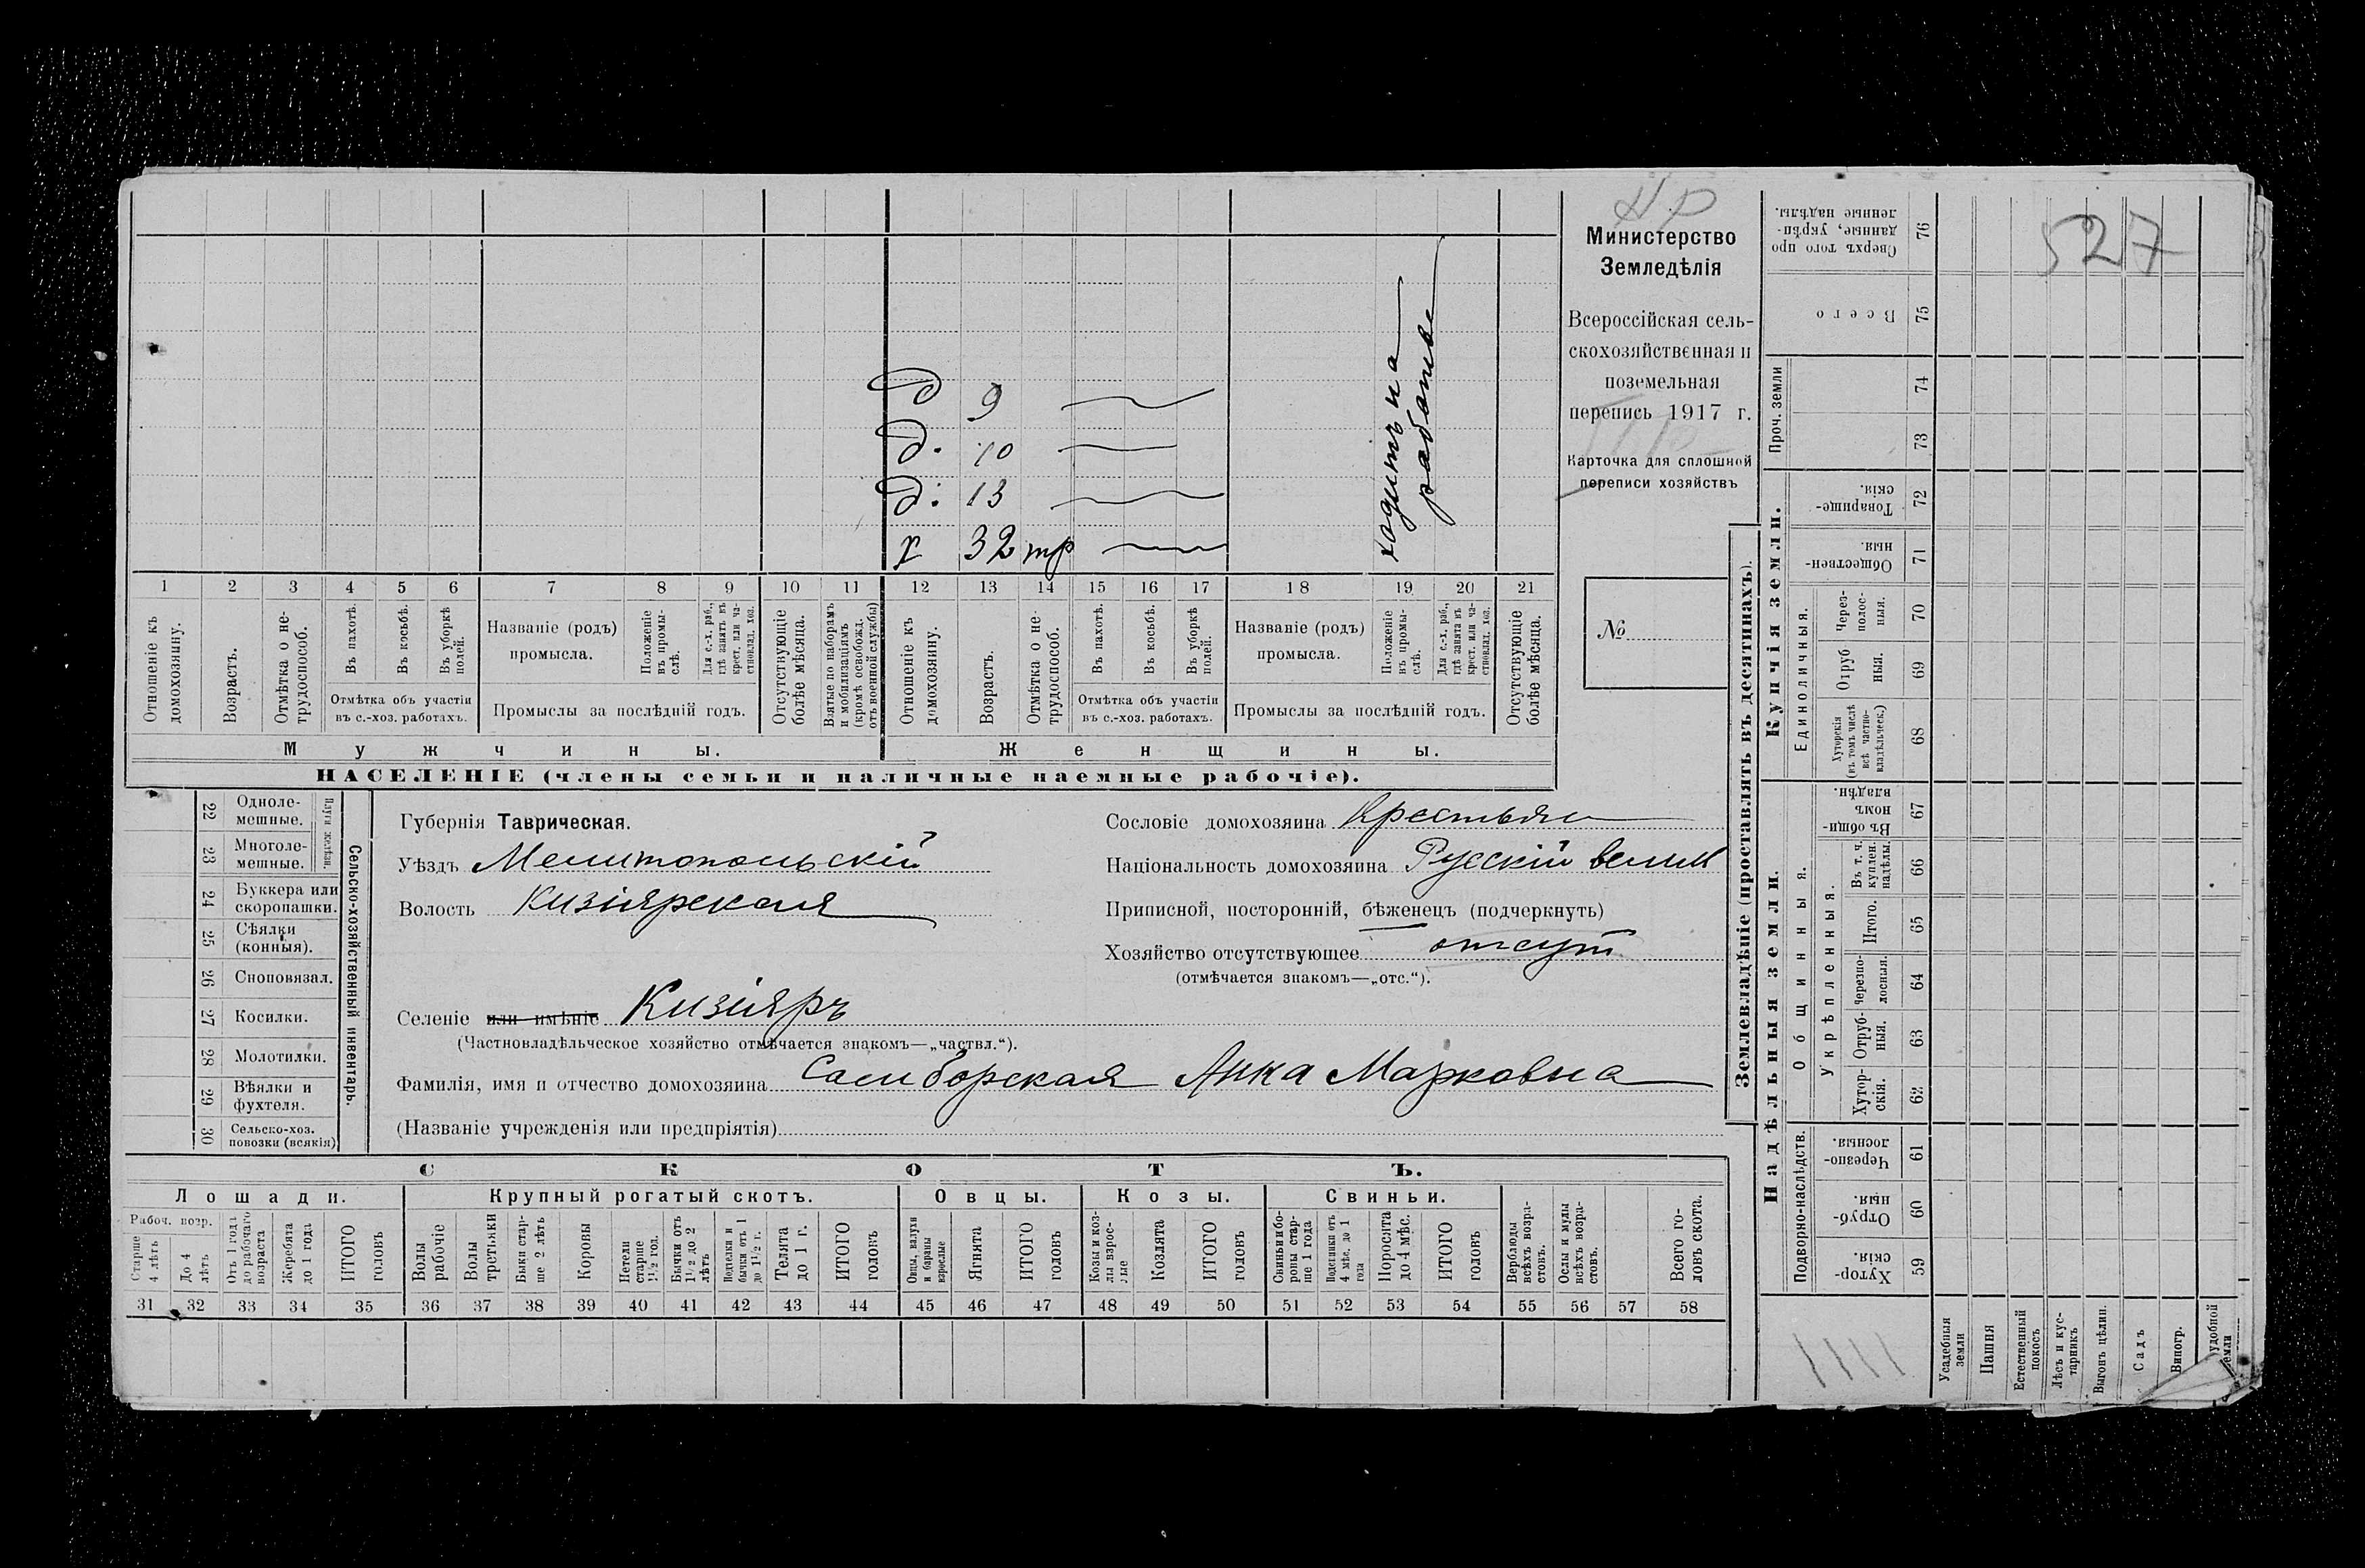 НР
Министерство
Земледѣлія
Всероссійская сель-
скохозяйственная и
поземельная
перепись 1917 г.
Карточка для сплошной
переписи хозяйствъ
№
527
д 9
д. 10
д. 13
х 32 тр
ходитъ на
работы
1 2 3 4 5 6 7 8 9 10 11 12 13 14 15 16 17 18 19 20 21
Отношеніе къ домохозяину.
Возрастъ.
Отмѣтка о не-трудоспособ.
Въ пахотѣ.
Въ косьбѣ.
Въ уборкѣ полей.
Отмѣтка объ участіи
въ с.-хоз. работахъ.
Названіе (родъ)
промысла.
Положеніе въ промы-слѣ.
Для с.-х. раб., гдѣ занятъ въ крест. или ча-стновлад. хоз.
Промыслы за послѣдній годъ.
Отсутствующіе болѣе мѣсяца.
Взятые по наборамъ и мобилизаціямъ (кромѣ освобожд. отъ военной службы)
Отношеніе къ домохозяину.
Возрастъ.
Отмѣтка о не-трудоспособ.
Въ пахотѣ.
Въ косьбѣ.
Въ уборкѣ полей.
Отмѣтка объ участіи
въ с.-хоз. работахъ.
Названіе (родъ)
промысла.
Положеніе въ промы-слѣ.
Для с.-х. раб., гдѣ занята въ крест. или ча-стновлад. хоз.
Промыслы за послѣдній годъ.
Отсутствующіе болѣе мѣсяца.
Мужчины.
Женщины.
НАСЕЛЕНІЕ (члены семьи и наличные наемные рабочіе).
22 Одноле-мешные.
23 Многоле-мешные.
Плуги желѣзн.
24 Буккера или скоропашки.
25 Сѣялки (конныя).
26 Сноповязал.
27 Косилки.
28 Молотилки.
29 Вѣялки и фухтеля.
30 Сельско-хоз. повозки (всякія)
Сельско-хозяйственный инвентарь.
Губернія Таврическая.
Уѣздъ Мелитопольскій
Волость Кизіярская
Сословіе домохозяина Крестьян
Національность домохозяина Русскій велик
Приписной, посторонній, бѣженецъ (подчеркнуть)
Хозяйство отсутствующее отсут
(отмѣчается знакомъ—„отс.“).
Селеніе или имѣніе Кизіяръ
(Частновладѣльческое хозяйство отмѣчается знакомъ—„частвл.“).
Фамилія, имя и отчество домохозяина Самборская Анна Марковна
(Названіе учрежденія или предпріятія)
СКОТЪ.
Лошади.
Крупный рогатый скотъ.
Овцы.
Козы.
Свиньи.
Рабоч. возр.
Старше 4 лѣтъ
До 4 лѣтъ
Отъ 1 года до рабочаго возраста
Жеребята до 1 года
ИТОГО головъ
Волы рабочіе
Волы третьяки
Быки стар-ше 2 лѣтъ
Коровы
Нетели старше 1½ год.
Бычки отъ 1½ до 2 лѣтъ
Подтелки и бычки отъ 1 до 1½ г.
Телята до 1 г.
ИТОГО головъ
Овцы, валухи и бараны взрослые
Ягнята
ИТОГО головъ
Козы и коз-лы взрос-лые
Козлята
ИТОГО головъ
Свиньи и бо-ровы стар-ше 1 года
Подсвинки отъ 4 мѣс. до 1 года
Поросята до 4 мѣс.
ИТОГО головъ
Верблюды всѣхъ возра-стовъ.
Ослы и мулы всѣхъ возра-стовъ.
Всего го-ловъ скота.
31 32 33 34 35 36 37 38 39 40 41 42 43 44 45 46 47 48 49 50 51 52 53 54 55 56 57 58
Землевладѣніе (проставлять въ десятинахъ).
Надѣльныя земли.
Купчія земли.
Проч. земли
Подворно-наслѣдств.
Общинныя.
Укрѣпленныя.
Единоличныя.
Сверхъ того про
данные, укрѣп-
ленные надѣлы. 76
Всего 75
74
73
Товарище-
скія. 72
Обществен-
ныя. 71
Через-полос-ныя. 70
Отруб ныя. 69
Хуторскія (въ томъ числѣ всѣ частно-владѣльческ.) 68
Въ общи-
номъ
владѣн. 67
Въ т. ч. куплен. надѣлы. 66
Итого. 65
Черезпо-лосныя. 64
Отруб-ныя. 63
Хутор-скія. 62
Черезпо-
лосныя. 61
Отруб-
ныя. 60
Хутор-
скія. 59
Усадебныя земли
Пашня
Естественный покосъ
Лѣсъ и кус-тарникъ
Выгонъ цѣлин.
Садъ
Виногр.
удобной земли